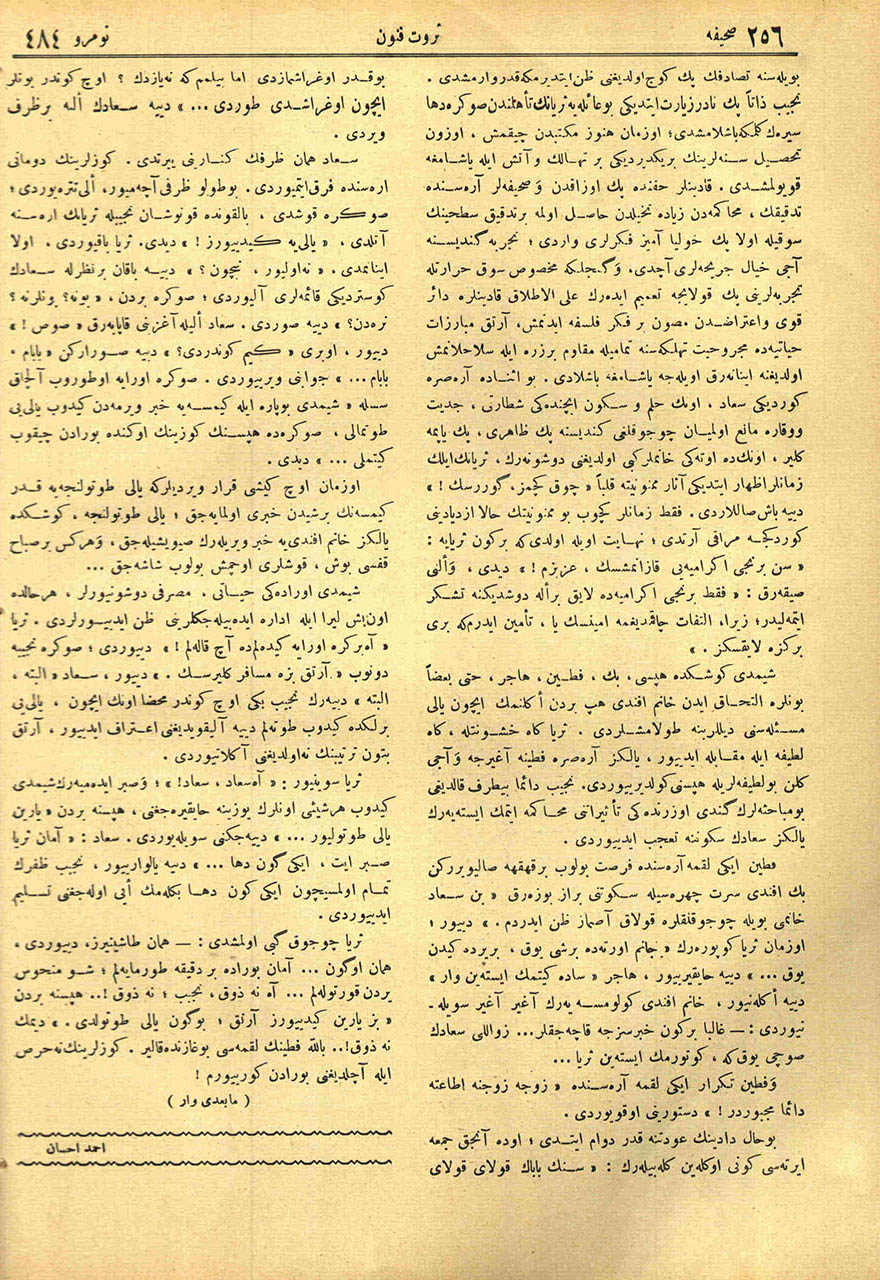 ٢٥٦ صحیفه
ثروت فنون
نومرو ٤٨٤
بویله‌سنه تصادفك پك كوج اولدیغنی ظن ایتدیرمكه قدر وارمشدی .
نجیب ذاتاً پك نادر زیارت ایتدیكی بو عائله‌یه ثریانك تأهلندن صوكره دها
سیره‌ك كلمكه باشلامشدی ؛ اوزمان هنوز مكتبدن چیقمش ، اوزون
تحصیل سنه‌لرینك بریكدیردیكی بر تهالك و آتش ایله یاشامغه
قویولمشدی . قادینلر حقنده پك اوزاقدن و صحیفه‌لر آره‌سنده
تدقیقك ، محاكمه‌دن زیاده تخیلدن حاصل اولمه بر تدقیق سطحینك
سوقیله اولا پك خولیا آمیز فكرلری واردی ؛ تجربه كندیسنه
آجی خیال جریحه‌لری آچدی. و كنجلكه مخصوص سوق حرارتله
تجربه‌لرینی پك قولایجه تعمیم ایده‌رك علی الاطلاق قادینلره دائر
قوی و اعتراضدن مصون بر فكر فلسفه ایدنمش، آرتق مبارزات
حیاتیه‌ده مجروحیت تهلكه‌سنه تمامیله مقاوم بر زره ایله سلاحلانمش
اولدیغنه اینانه‌رق اویله‌جه یاشامغه باشلادی . بو اثناده آره‌صره
كوردیكی سعاد ، اونك حلم و سكون ایچنده‌كی شطارتی ، جدیت
و وقاره مانع اولمیان چوجوقلغی كندیسنه پك ظاهری ، پك یاپمه
كلیر ، اونكده اوته‌كی خانملر كبی اولدیغنی دوشونه‌رك ، ثریانك ایلك
زمانلر اظهار ایتدیكی آثار ممنونیته قلباً « چوق كچمز، كوررسك ! »
دییه باش صاللاردی . فقط زمانلر كچوب بو ممنونیتك حالا ازدیادینی
كوردكجه مراقی آرتدی ؛ نهایت اویله اولدی كه بر كون ثریایه :
« سن برنجی اكرامیه‌یی قازانمشسك ، عزیزم ! » دیدی ، و ألنی
صیقه‌رق : « فقط برنجی اكرامیه‌ده لایق بر أله دوشدیكنه تشكر
ایتمه‌لیدر ؛ زیرا، التفات چاقدیغمه امینسك یا ، تأمین ایدرم كه بری
بركزه لایقسكز . »
شیمدی كوشكده هپسی، بك ، فطین، هاجر ، حتی بعضاً
بونلره التحاق ایدن خانم افندی هپ بردن أكلنمك ایچون یالی
مسئله‌سنی دیللرینه طولامشلردی . ثریا كاه خشونتله ، كاه
لطیفه ایله مقابله ایدییور ، یالكز آره‌صره فطینه آغیرجه و آجی
كلن بو لطیفه‌لریله هپسنی كولدیرییوردی. نجیب دائما بیطرف قالدیغی
بو مباحثه‌لرك كندی اوزرنده‌كی تأثیراتنی محاكمه ایتمك ایسته‌یه‌رك
یالكز سعادك سكوتنه تعجب ایدییوردی .
فطین ایكی لقمه آره‌سنده فرصت بولوب بر قهقهه صالیویرركن
بك افندی سرت چهره‌سیله سكوتنی براز بوزه‌رق « بن سعاد
خانمی بویله چوجوقلقلره قولاق آصماز ظن ایدردم . » دییور ؛
اوزمان ثریا كوپوره‌رك « جانم اورته‌ده برشی یوق ، بریرده كیدن
یوق ... » دییه حایقیرییور ، هاجر « ساده كیتمك ایسته‌ین وار »
دییه أكله‌نیور ، خانم افندی كولومسه‌یه‌رك آغیر آغیر سویله‌ـ
نیوردی : — غالبا بركون خبرسزجه قاچه‌جقلر... زواللی سعادك
صوچی یوق كه ، كوتورمك ایسته‌ین ثریا ...
و فطین تكرار ایكی لقمه آره‌سنده « زوجه زوجنه اطاعته
دائما مجبوردر ! » دستورینی اوقویوردی .
بو حال دادینك عودتنه قدر دوام ایتدی ؛ اوده آنجق جمعه
ایرته‌سی كونی اوكله‌ین كله‌بیله‌رك : « سنك باباك قولای قولای
بوقدر اوغراشمازدی اما بیلمم كه نه‌یازدك ؟ اوچ كوندر بونلر
ایچون اوغراشدی طوردی ... » دییه سعادك أله بر ظرف
ویردی .
سعاد همان ظرفك كنارینی ییرتدی . كوزلرینك دومانی
اره‌سنده فرق ایتمیوردی . بو طولو ظرفی آچه‌میور، ألی تتره‌یوردی ؛
صوكره قوشدی ، بالقونده قونوشان نجیبله ثریانك اره‌سنه
آتلدی ، « یالی‌یه كیدییورز ! » دیدی. ثریا باقیوردی . اولا
اینانمدی . « نه‌اولیور ، نیچون ؟ » دییه باقان بر نظرله سعادك
كوستردیكی قائمه‌لری آلیوردی ؛ صوكره بردن ، « بونه؟ بونلر نه ؟
نره‌دن؟ » دییه صوردی . سعاد ألیله آغزینی قاپایه‌رق « صوص ! »
دییور ، اوبری « كیم كوندردی؟ » دییه صورارکن « بابام ،
بابام ... » جوابنی ویرییوردی . صوكره اورایه اوطوروب آلچاق
سسله « شیمدی بو پاره ایله كیمسه‌یه خبر ویرمه‌دن كیدوب یالی‌یی
طوتمالی ، صوكره‌ده هپسنك كوزینك اوكنده بورادن چیقوب
كیتملی ... » دیدی .
اوزمان اوچ كیشی قرار ویردیلر كه یالی طوتولنجه‌یه قدر
كیمسه‌نك برشیدن خبری اولمایه‌جق ؛ یالی طوتولنجه ، كوشكده
یالكز خانم افندی‌یه خبر ویریله‌رك صیویشیله‌جق ، و هركس بر صباح
قفسی بوش ، قوشلری اوچمش بولوب شاشه‌جق ...
شیمدی اوراده‌كی حیاتی ، مصرفی دوشونیورلر ، هر حالده
اون‌بش لیرا ایله اداره ایده‌بیله‌جكلرینی ظن ایدییورلردی . ثریا
« آه بركره اورایه كیده‌لم‌ده آچ قاله‌لم ! » دییوردی ؛ صوكره نجیبه
دونوب « آرتق بزه مسافر كلیرسك . » دییور ، سعاد « البته ،
البته » دییه‌رك نجیب بكی اوچ كوندر محضا اونك ایچون ، یالی‌یی
برلكده كیدوب طوته‌لم دییه آلیقویدیغنی اعتراف ایدییور ، آرتق
بتون ترتیبنك نه اولدیغنی آكلاتیوردی .
ثریا سوینیور : « آه سعاد ، سعاد! » ؛ و صبر ایده‌میه‌رك شیمدی
كیدوب هرشیئی اونلرك یوزینه حایقیره‌جغنی ، هپسنه بردن « یارین
یالی طوتولیور ... » دییه‌جكنی سویله‌یوردی . سعاد : « آمان ثریا
صبر ایت ، ایكی كون دها ... » دییه یالوارییور ، نجیب ظفرك
تمام اولمسیچون ایكی كون دها بكله‌مك أیی اوله‌جغنی تسلیم
ایدییوردی .
ثریا چوجوق كبی اولمشدی : — همان طاشینیرز، دییوردی ،
همان اوكون ... آمان بوراده بر دقیقه طورمایه‌لم ؛ شو منحوس
یردن قورتوله‌لم ... آه نه ذوق ، نجیب ؛ نه ذوق !.. هپسنه بردن
« بز یارین كیدییورز آرتق ؛ بوكون یالی طوتولدی . » دیمك
نه ذوق!.. بالله فطینك لقمه‌سی بوغازنده قالیر . كوزلرینك نه حرص
ایله آچلدیغنی بورادن كورییورم !
( مابعدی وار )
احمد احسان